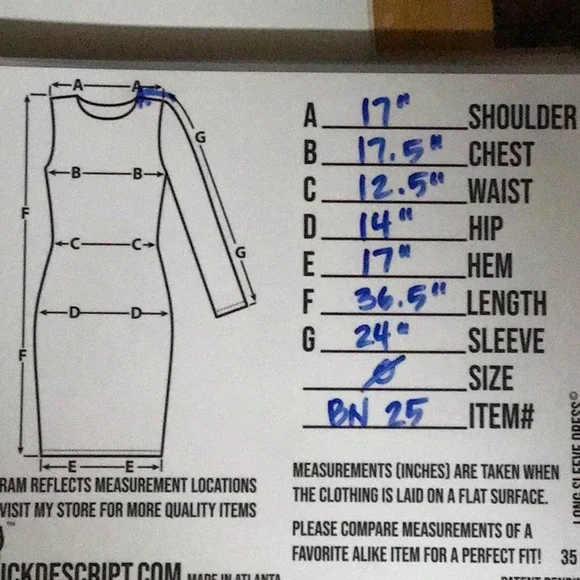 A A
G
B B
F
C C
G
D D
F
E E
A 17" SHOULDER
B 17.5" CHEST
C 12.5" WAIST
D 14" HIP
E 17" HEM
F 36.5" LENGTH
G 24" SLEEVE
Ø SIZE
BN 25 ITEM#
RAM REFLECTS MEASUREMENT LOCATIONS
VISIT MY STORE FOR MORE QUALITY ITEMS
™
ICKDESCRIPT.COM MADE IN ATLANTA
MEASUREMENTS (INCHES) ARE TAKEN WHEN
THE CLOTHING IS LAID ON A FLAT SURFACE.
PLEASE COMPARE MEASUREMENTS OF A
FAVORITE ALIKE ITEM FOR A PERFECT FIT! 35
LONG SLEEVE DRESS©